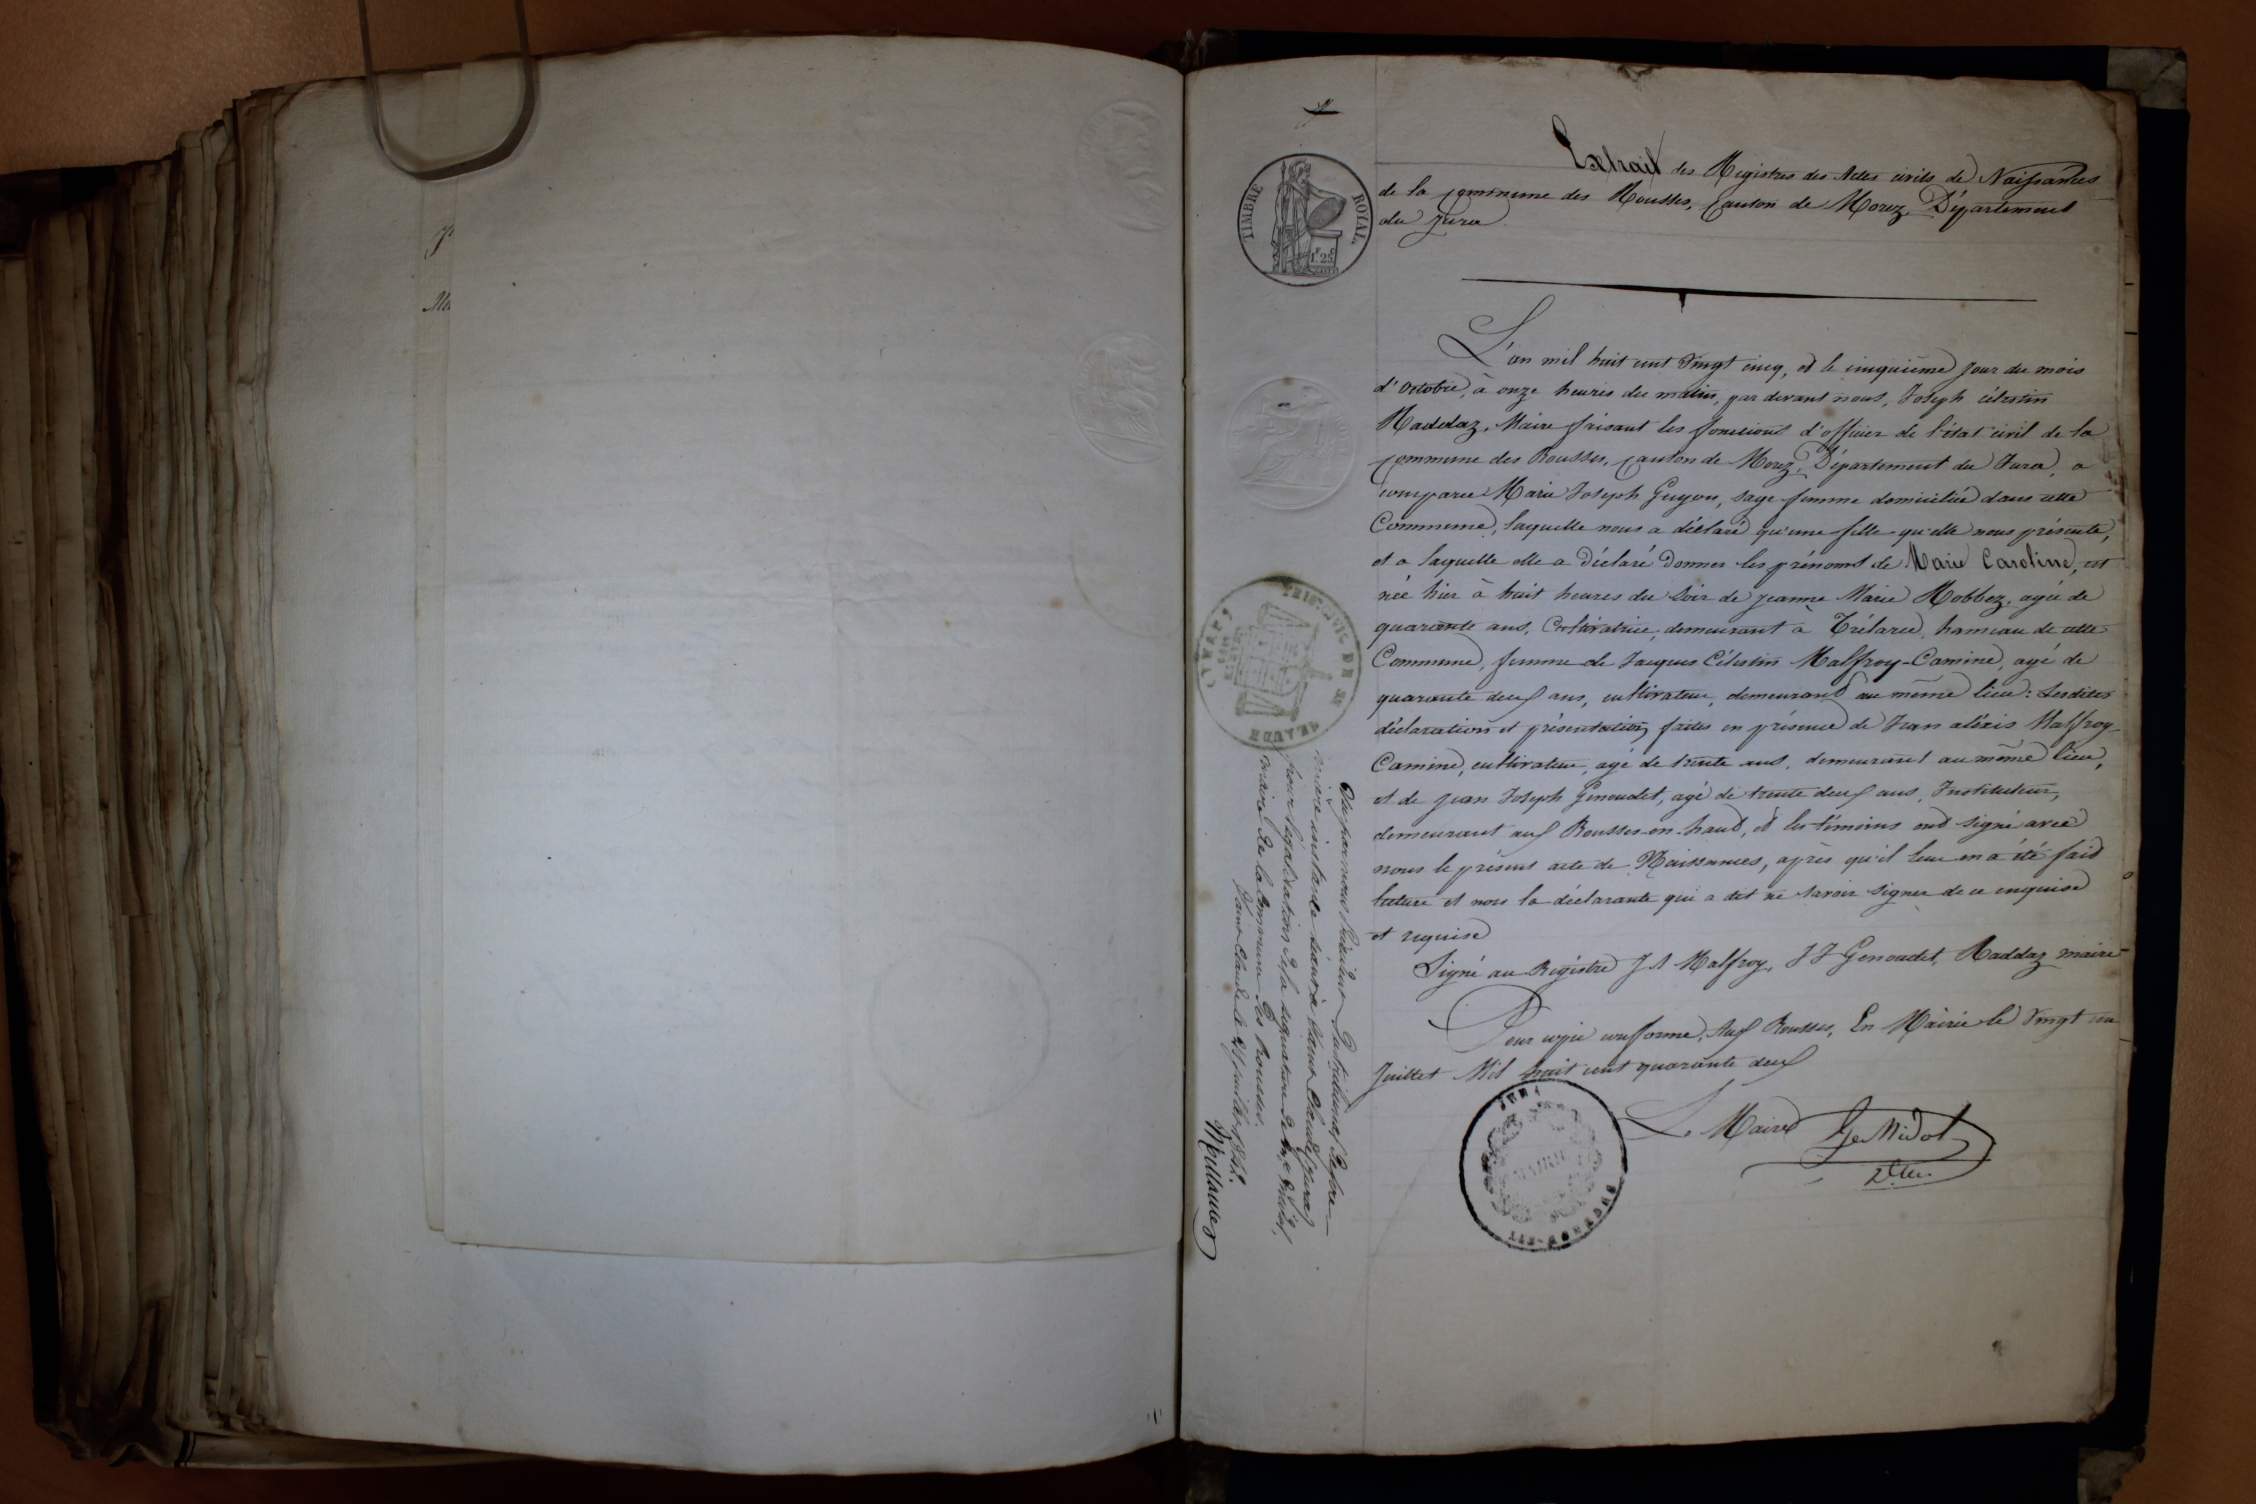 Extrait des Registres des Actes civils de Naissances
de la commune des Rousses, Canton de Morez, Département
du Jura
TIMBRE ROYAL
1F 25C
L'an mil huit cent vingt cinq, et le cinquième jour du mois
d'octobre, à onze heures du matin, par devant nous, Joseph célestin
Raddaz, Maire faisant les fonctions d'officier de l'état civil de la
commune des Rousses, canton de Morez, Département du Jura, a
comparu Marie Joseph Guyon, sage femme domiciliée dans cette
Commune, laquelle nous a déclaré qu'une fille qu'elle nous présente,
et a laquelle elle a déclaré donner les prénoms de Marie Caroline, est
née hier à huit heures du soir de jeanne Marie Hobbez, agée de
quarante ans, Cultivatrice, demeurant à Trélarce, hameau de cette
Commune, femme de Jacques Célestin Malfroy-Camine, agé de
quarante deux ans, cultivateur, demeurant au même lieu : Lesdites
déclaration et présentation faites en présence de Jean aléxis Malfroy-
Camine, cultivateur, agé de trente ans, demeurant au même lieu,
et de jean Joseph Genoudet, agé de trente deux ans, Instituteur,
demeurant aux Rousses-en-haut, et les témoins ont signé avec
nous le présent acte de Naissances, après qu'il leur en a été fait
lecture et non la déclarante qui a dit ne savoir signer de ce enquise
et requise
Signé au Régistre J A Malfroy, J J Genoudet, Raddaz maire
Pour copie conforme, Aux Rousses, En Mairie le vingt un
Juillet Mil huit cent quarante deux
Le Maire
JURA
MAIRIE
Vu par nous
première instance séant à Saint Claude (Jura)
pour légalisation de la signature de
maire de la Commune des Rousses.
Saint Claude le 21 juillet 1842.